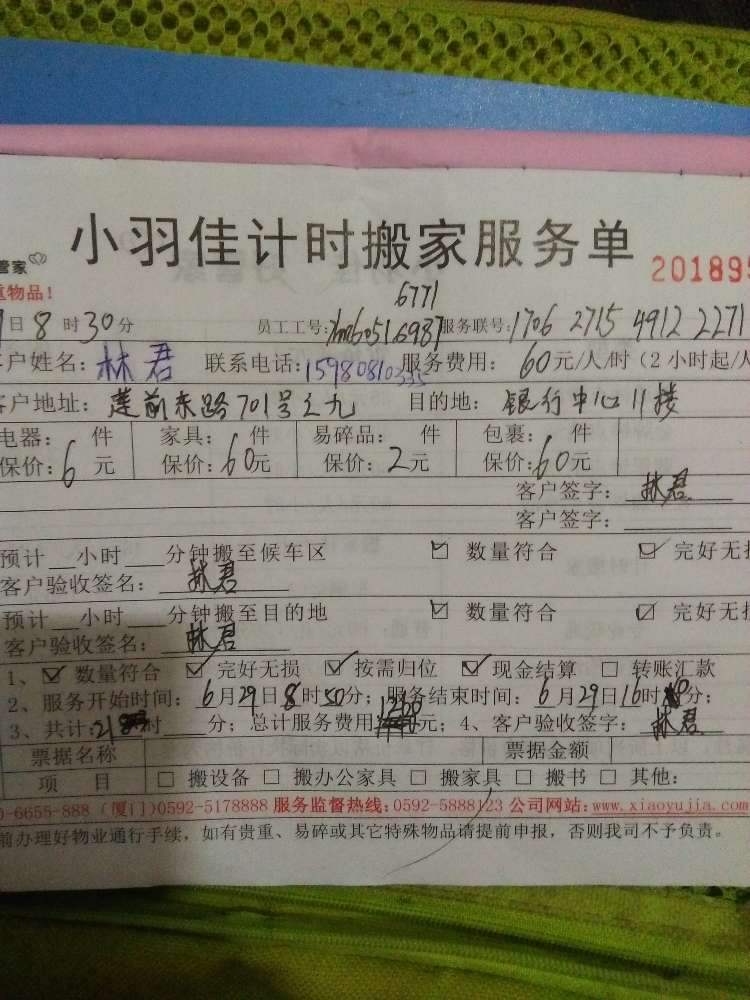 小羽佳计时搬家服务单
管家
重物品！
201895
6771
日8时30分 员工工号: 服务联号:1706 2715 4912 2271
客户姓名:林君 联系电话:15980810335 服务费用:60元/人/时(2小时起/人
客户地址:莲前东路701号之九 目的地:银行中心11楼
电器: 件 家具: 件 易碎品: 件 包裹: 件
保价:6元 保价:60元 保价:2元 保价:60元
客户签字:林君
客户签字:
预计__小时___分钟搬至候车区 ☑ 数量符合 ☑ 完好无损
客户验收签名:林君
预计__小时___分钟搬至目的地 ☑ 数量符合 ☑ 完好无损
客户验收签名:林君
1、☑ 数量符合 ☑ 完好无损 ☑ 按需归位 ☑ 现金结算 □ 转账汇款
2、服务开始时间:6月29日8时50分; 服务结束时间:6月29日16时 分;
3、共计:21 时 分; 总计服务费用1260元; 4、客户验收签字:林君
票据名称 票据金额
项 目 □ 搬设备 □ 搬办公家具 □ 搬家具 □ 搬书 □ 其他:
0-6655-888 (厦门)0592-5178888 服务监督热线:0592-5888123 公司网站:www.xiaoyujia.com
前办理好物业通行手续,如有贵重、易碎或其它特殊物品请提前申报,否则我司不予负责。